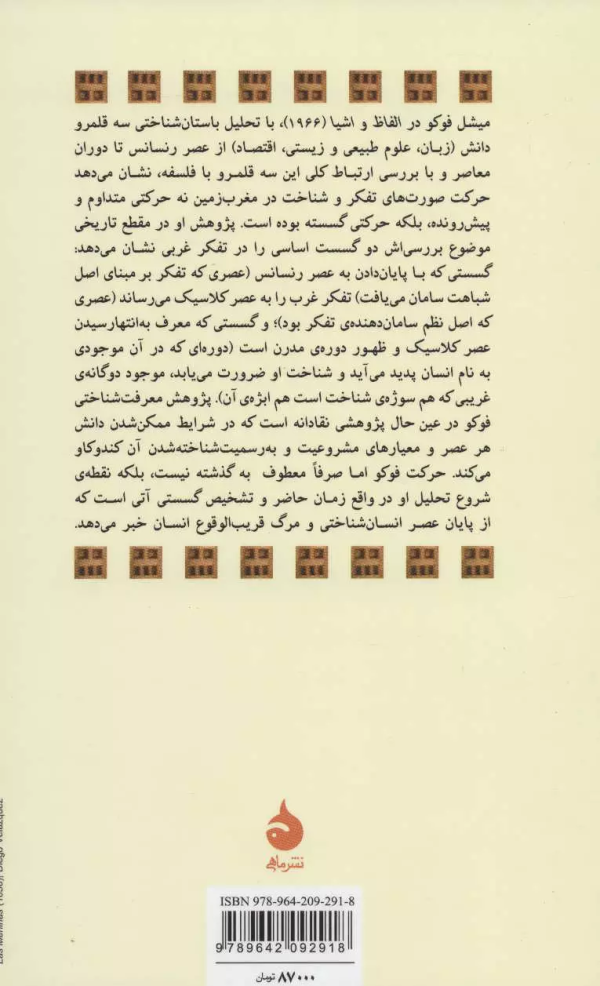 میشل فوکو در الفاظ و اشیا (۱۹۶۶)، با تحلیل باستان‌شناختی سه قلمرو
دانش (زبان، علوم طبیعی و زیستی، اقتصاد) از عصر رنسانس تا دوران
معاصر و با بررسی ارتباط کلی این سه قلمرو با فلسفه، نشان می‌دهد
حرکت صورت‌های تفکر و شناخت در مغرب‌زمین نه حرکتی متداوم و
پیش‌رونده، بلکه حرکتی گسسته بوده است. پژوهش او در مقطع تاریخی
موضوع بررسی‌اش دو گسست اساسی را در تفکر غربی نشان می‌دهد:
گسستی که با پایان‌دادن به عصر رنسانس (عصری که تفکر بر مبنای اصل
شباهت سامان می‌یافت) تفکر غرب را به عصر کلاسیک می‌رساند (عصری
که اصل نظم سامان‌دهنده‌ی تفکر بود)؛ و گسستی که معرف به‌انتهارسیدن
عصر کلاسیک و ظهور دوره‌ی مدرن است (دوره‌ای که در آن موجودی
به نام انسان پدید می‌آید و شناخت او ضرورت می‌یابد، موجود دوگانه‌ی
غریبی که هم سوژه‌ی شناخت است هم ابژه‌ی آن). پژوهش معرفت‌شناختی
فوکو در عین حال پژوهشی نقادانه است که در شرایط ممکن‌شدن دانش
هر عصر و معیارهای مشروعیت و به‌رسمیت‌شناخته‌شدن آن کندوکاو
می‌کند. حرکت فوکو اما صرفاً معطوف به گذشته نیست، بلکه نقطه‌ی
شروع تحلیل او در واقع زمان حاضر و تشخیص گسستی آتی است که
از پایان عصر انسان‌شناختی و مرگ قریب‌الوقوع انسان خبر می‌دهد.
نشرماهی
ISBN 978-964-209-291-8
9 789642 092918
۸۷۰۰۰ تومان
Las Meninas (1656), Diego Velázquez